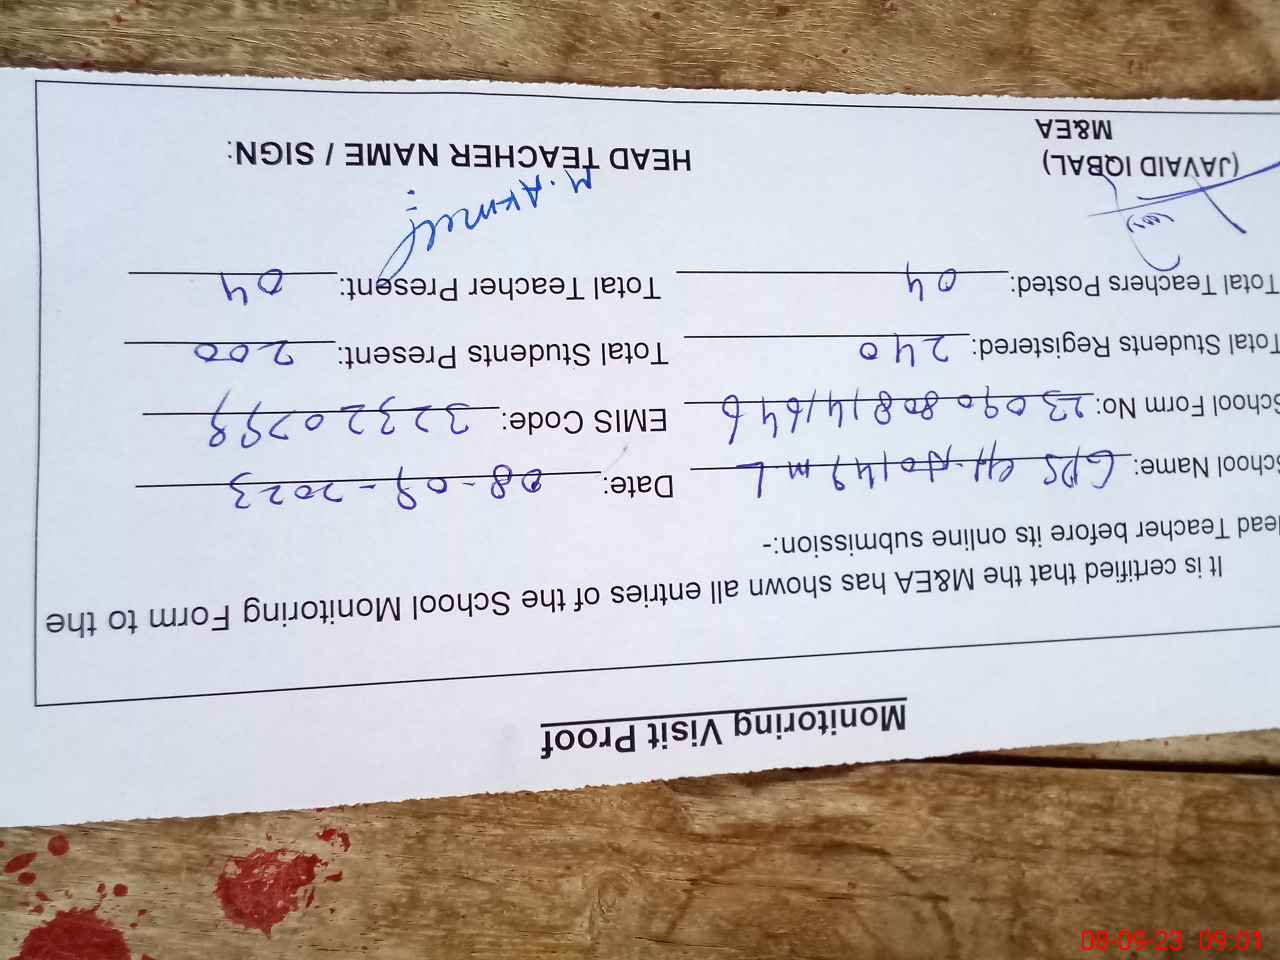 Monitoring Visit Proof
It is certified that the M&EA has shown all entries of the School Monitoring Form to the
Head Teacher before its online submission:-
School Name: GPS Ch. No 149 m L Date: 08-09-2023
School Form No: 230908081414646 EMIS Code:
Total Students Registered: 240 Total Students Present: 200
Total Teachers Posted: 04 Total Teacher Present: 04
(JAVAID IQBAL)
M&EA
HEAD TEACHER NAME / SIGN:
08-09-23 09:01